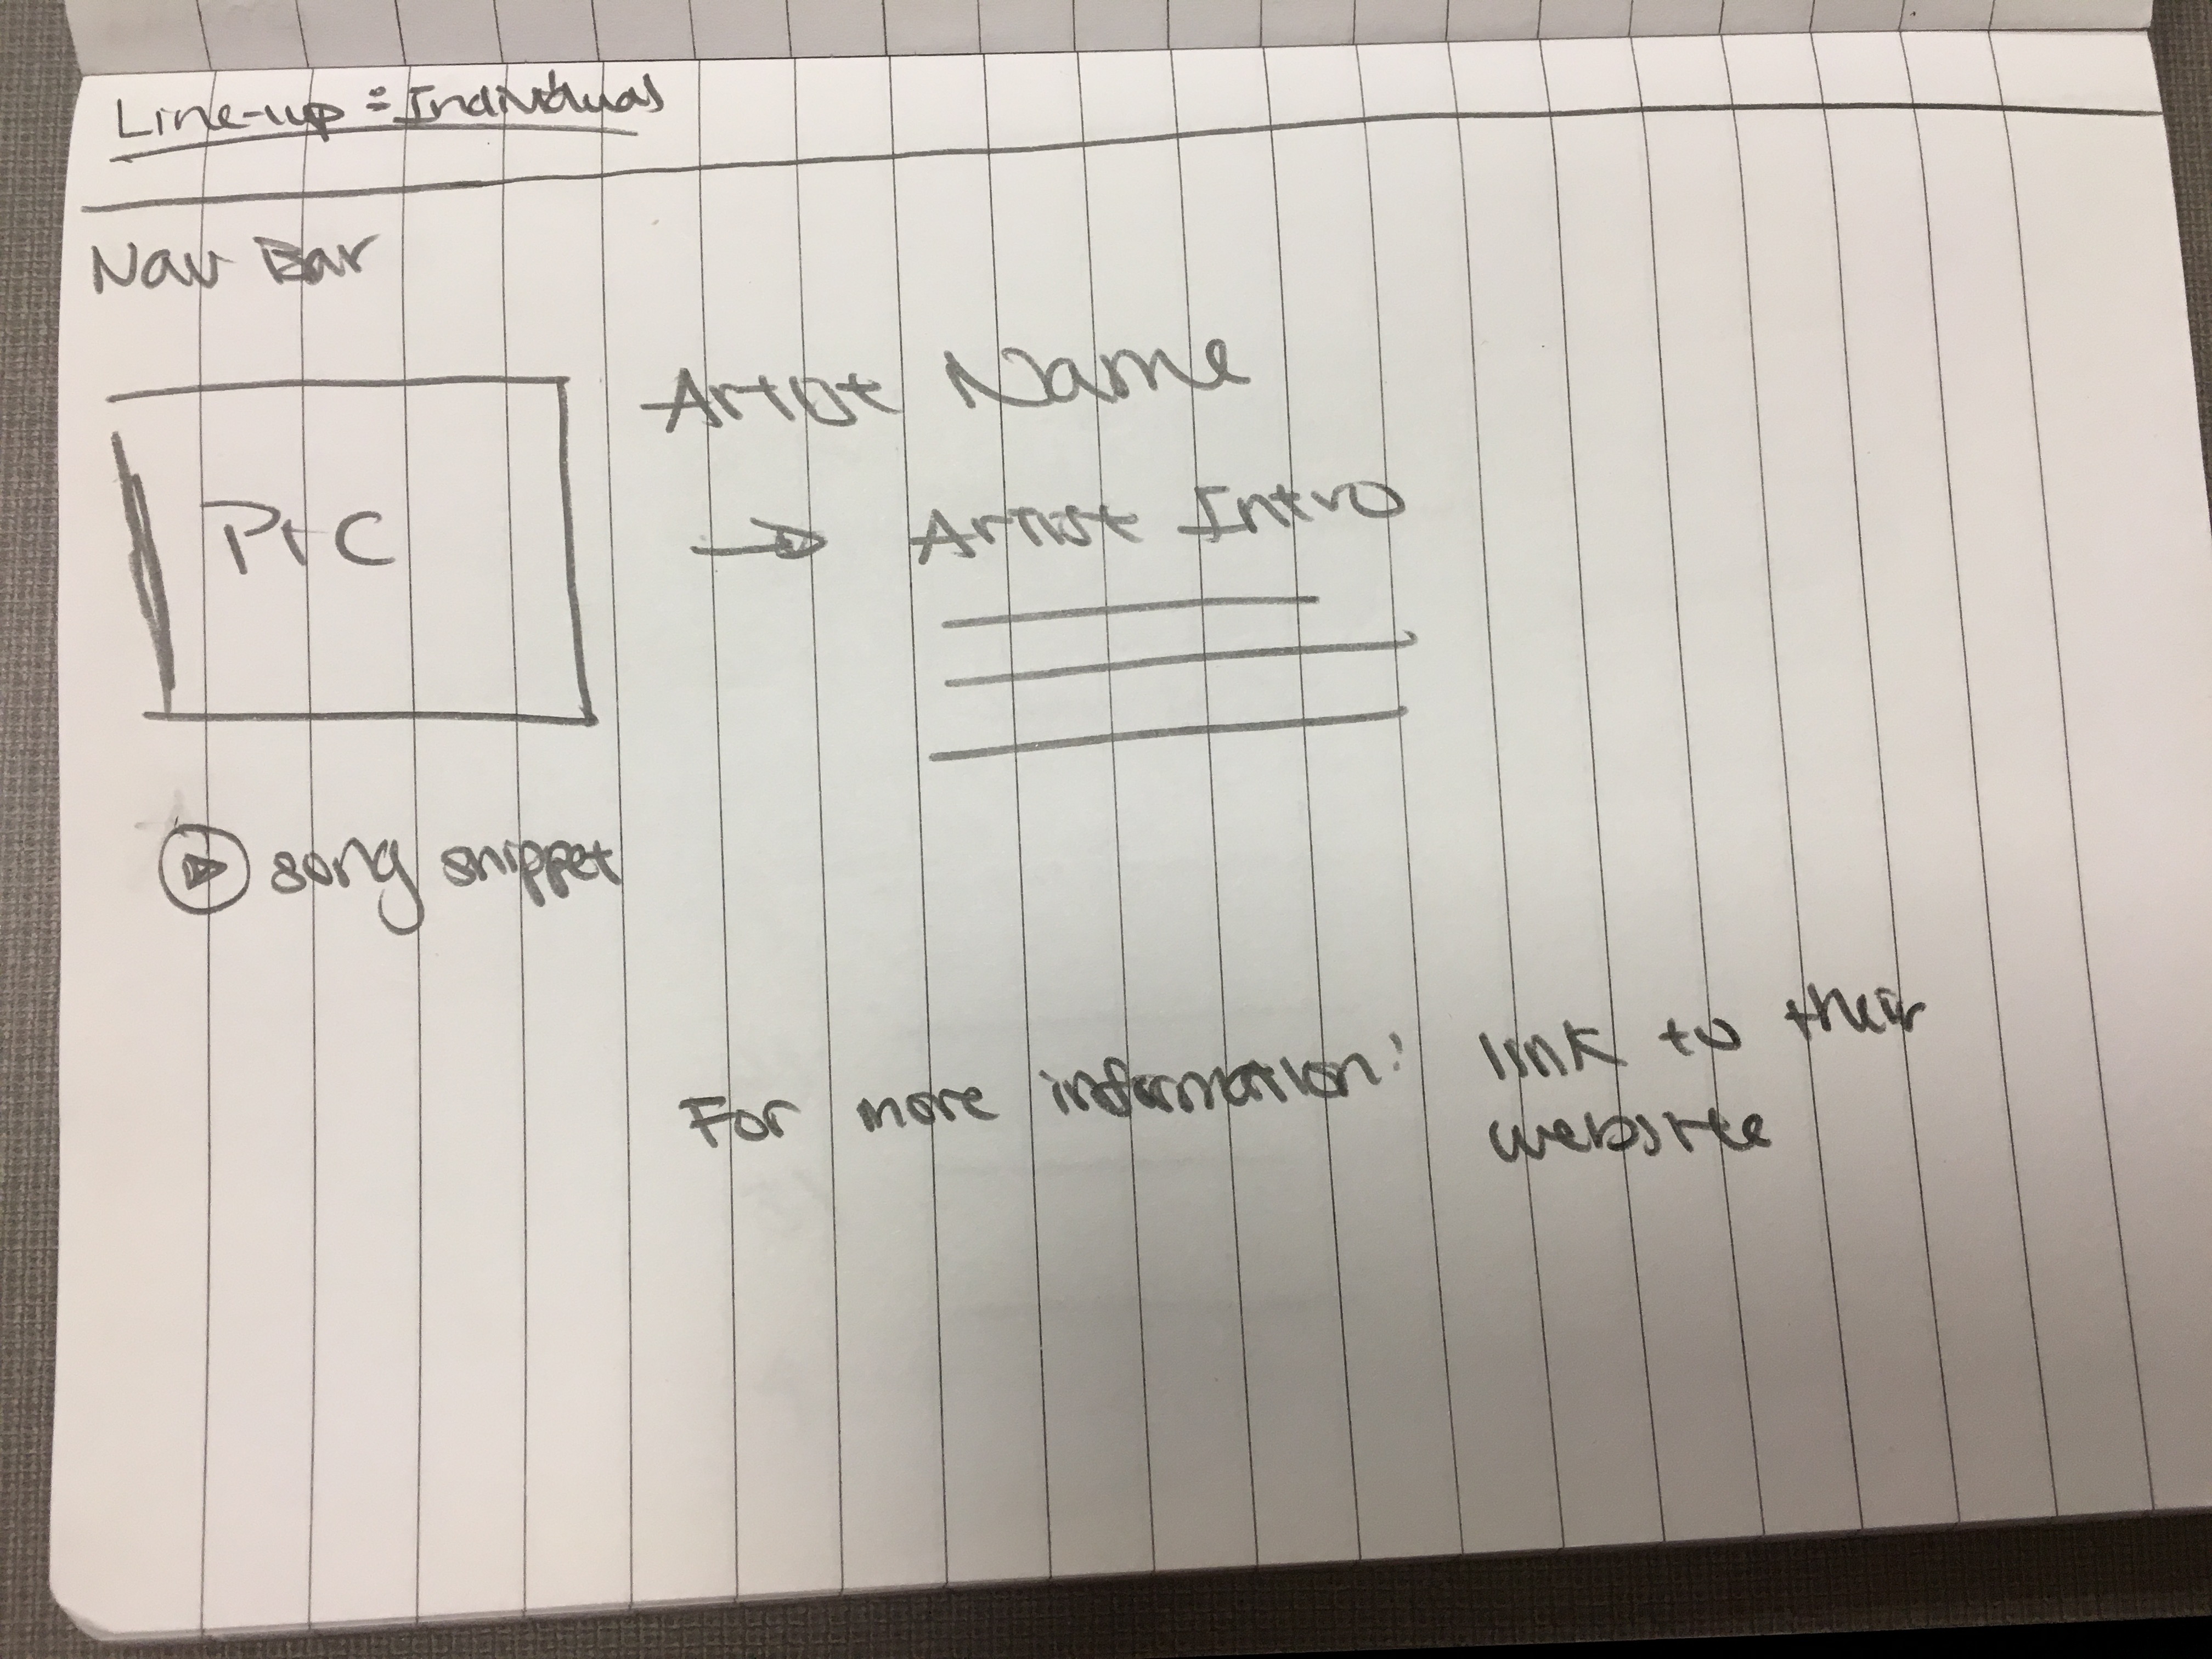 Line-up: Individual
Nav Bar
Artist Name
PIC
Artist Intro
song snippet
For more information: link to their
website